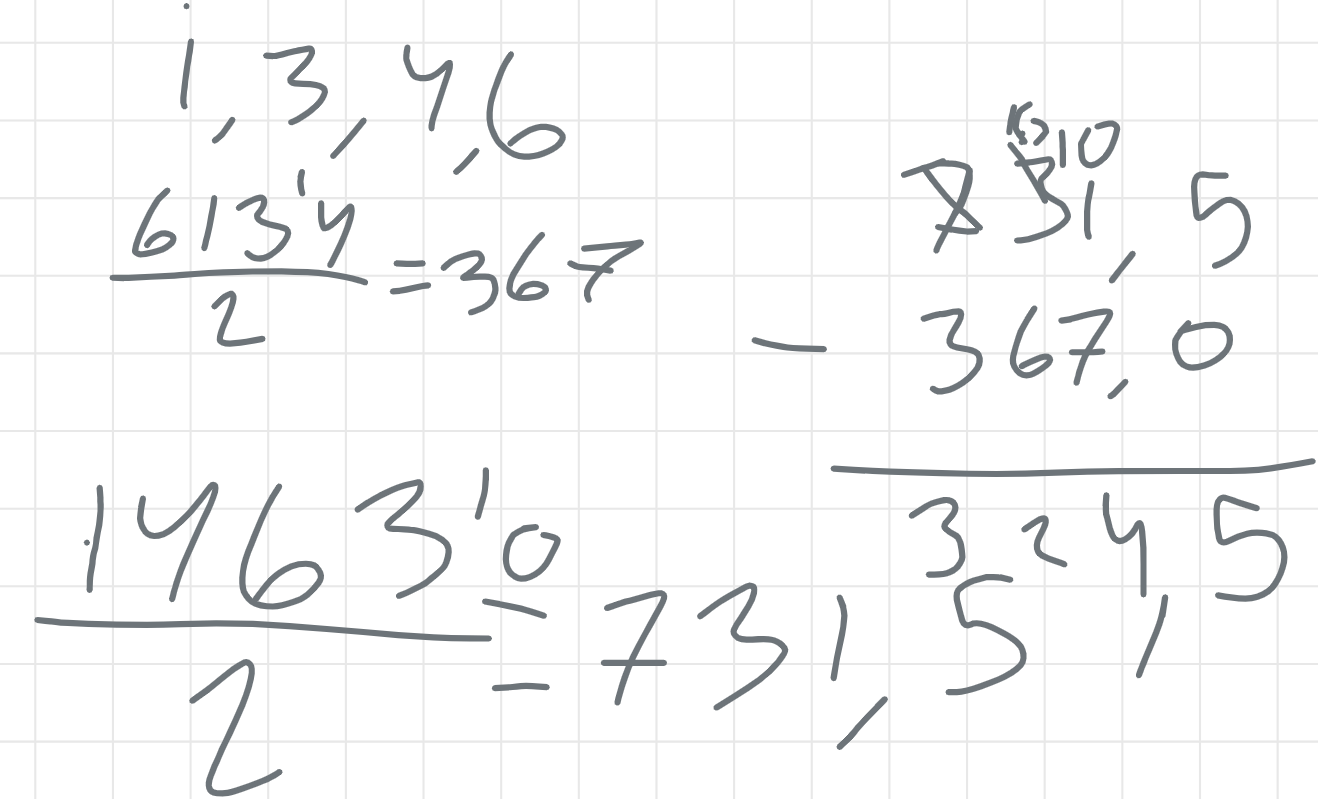 1, 3, 4, 6
613'4
2
= 367
1463'0
2
= 731,5
6 10
731,5
- 367,0
324,5